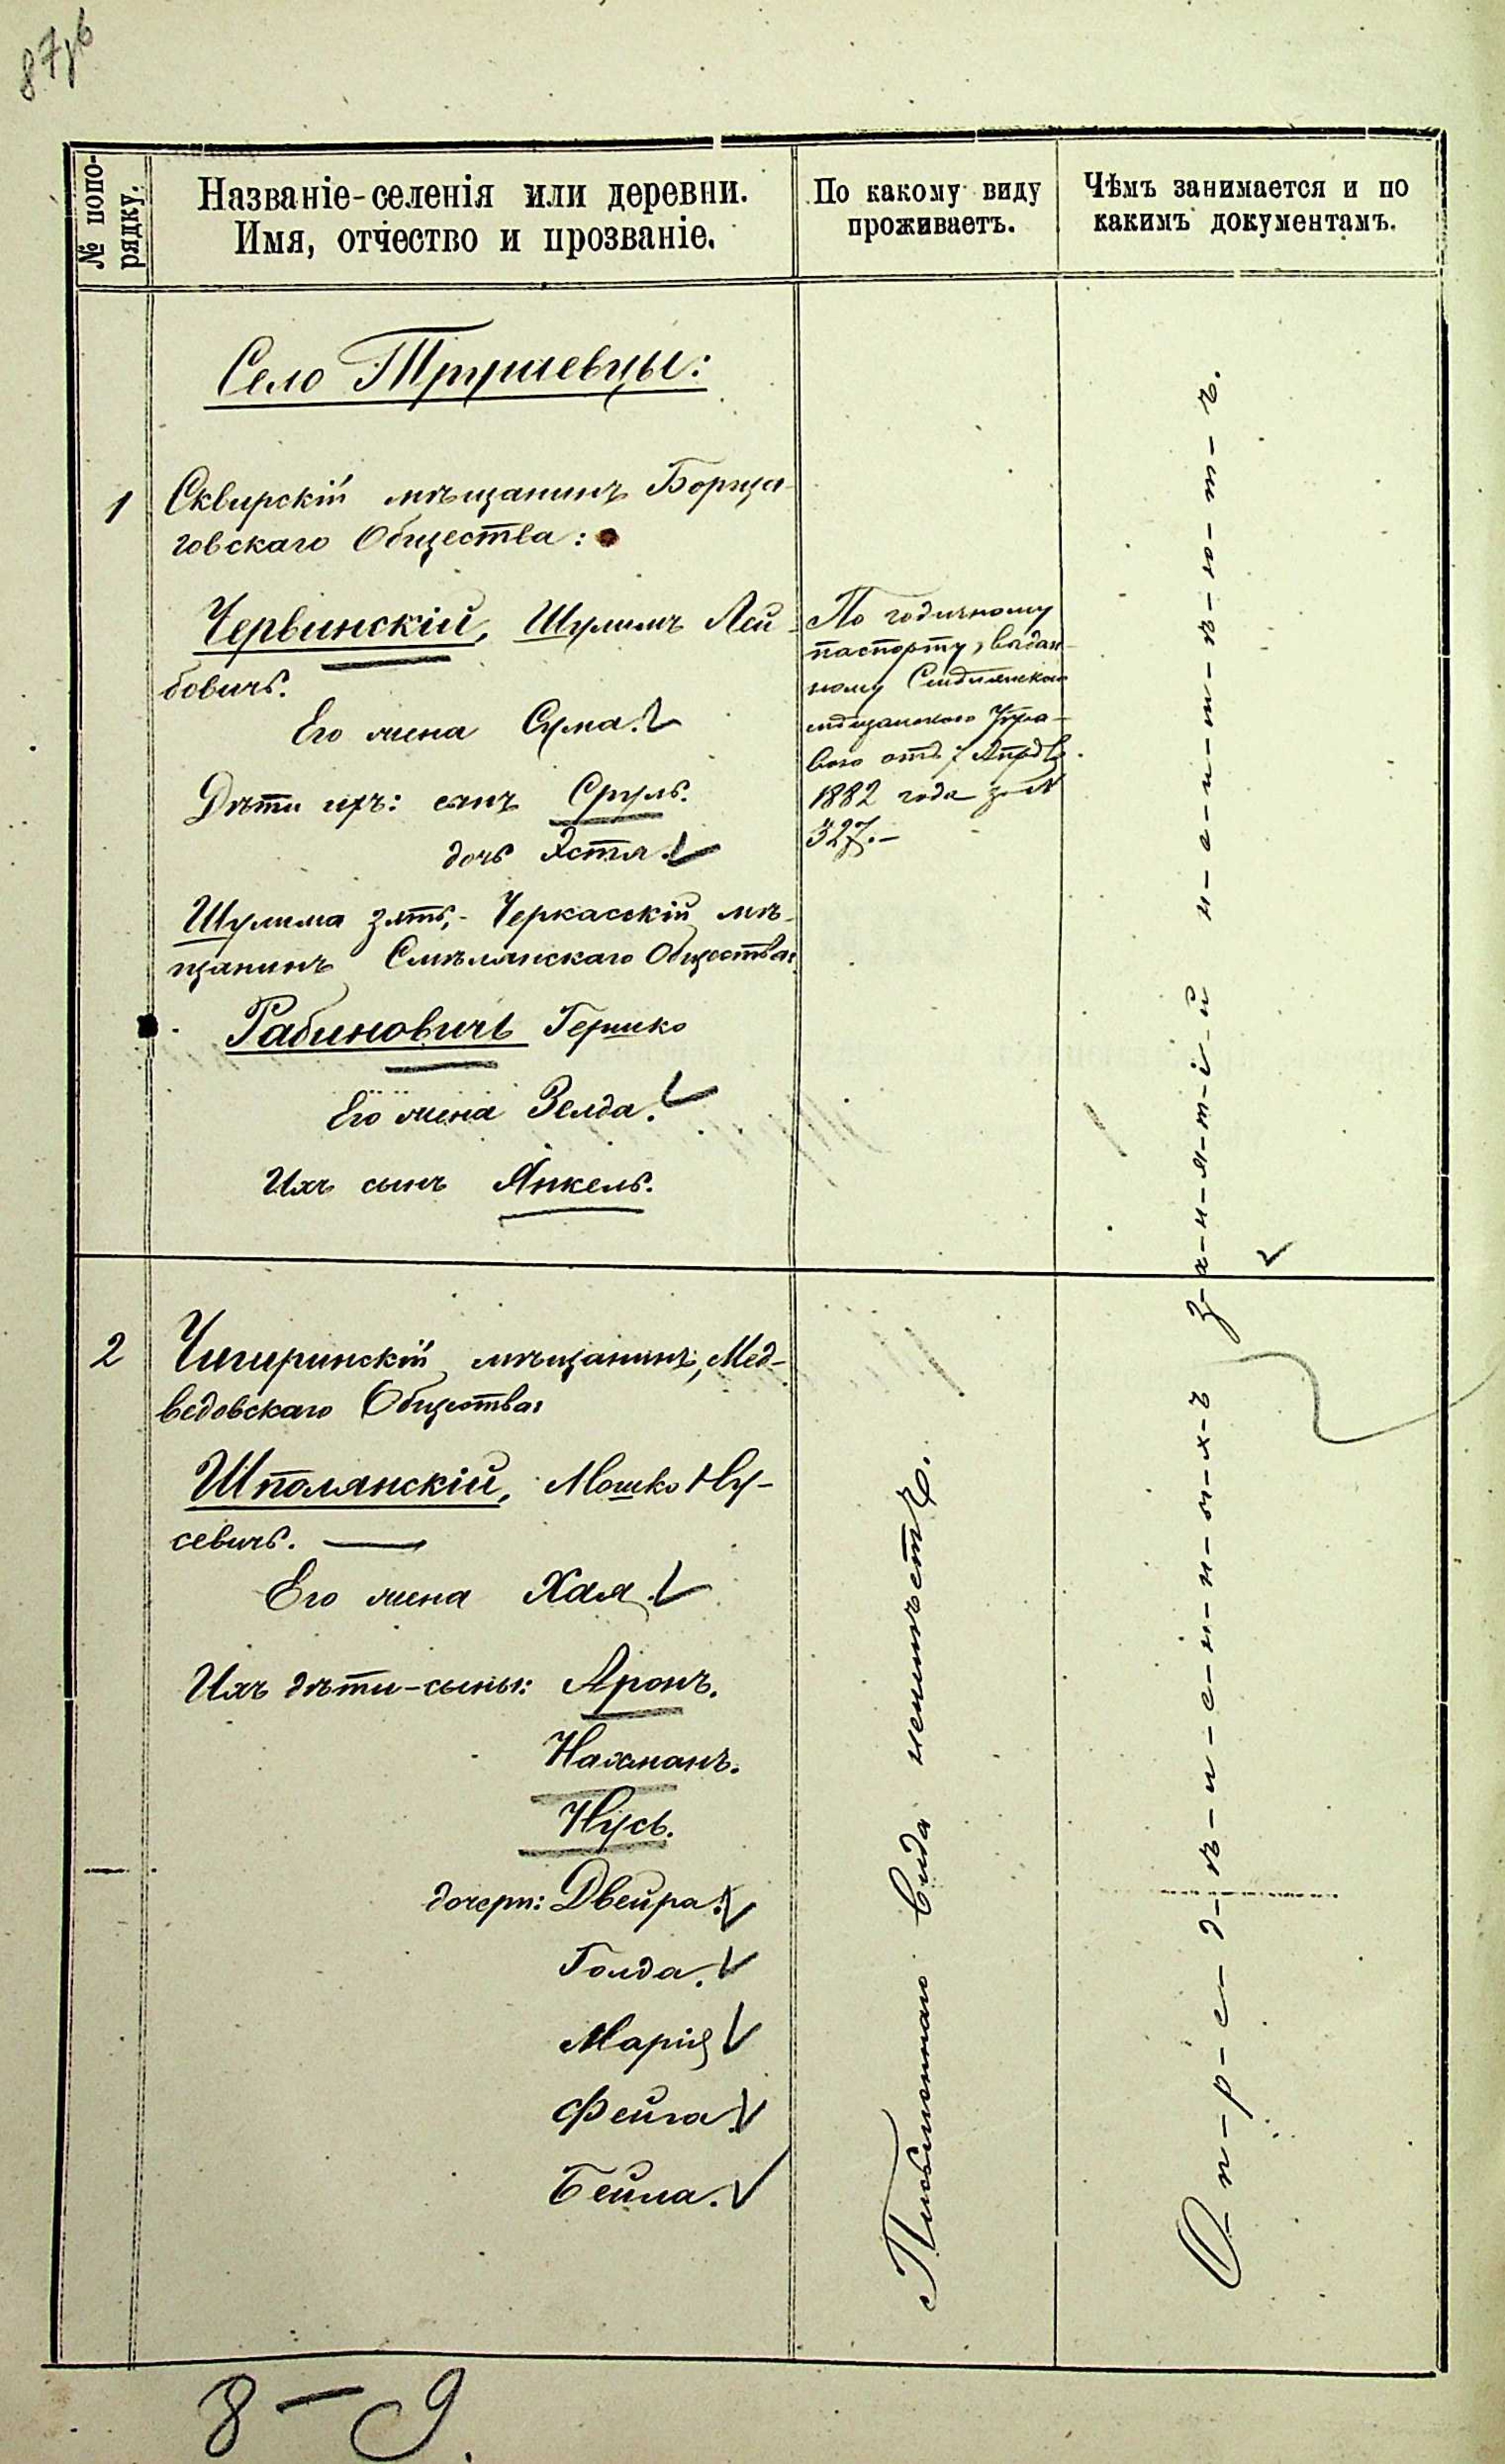 87об
№ попо-
рядку.
Названіе-селенія или деревни.
Имя, отчество и прозваніе.
По какому виду
проживаетъ.
Чѣмъ занимается и по
какимъ документамъ.
Село Трушевцы:
1
Сквирскій мѣщанинъ Борща-
говскаго Общества:
Червинскій, Шулимъ Лей-
бовичъ.
Его жена Сума.
Дѣти ихъ: сынъ Сруль.
дочь Эстя.
Шулима зять, - Черкасскій мѣ-
щанинъ Смѣлянскаго Общества:
Рабиновичъ Гершко
Его жена Зелда.
Ихъ сынъ Янкель.
По годичному
паспорту, выдан-
ному
мѣщанскою Упра-
вою отъ 7 Апрѣля
1882 года за №
327.-
2
Чигиринскій мѣщанинъ, Мед-
ведовскаго Общества:
Шполянскій, Мошко Ну-
севичъ.
Его жена Хая.
Ихъ дѣти-сыны: Аронъ.
Нахманъ.
Нусь.
дочери: Двейра.
Голда.
Марія
Фейга.
Бейла.
Письменнаго вида неимѣетъ.
О-п-р-е-д-ѣ-л-е-н-н-ы-х-ъ з-а-н-я-т-і-й н-е-и-м-ѣ-ю-т-ъ.
8-9.